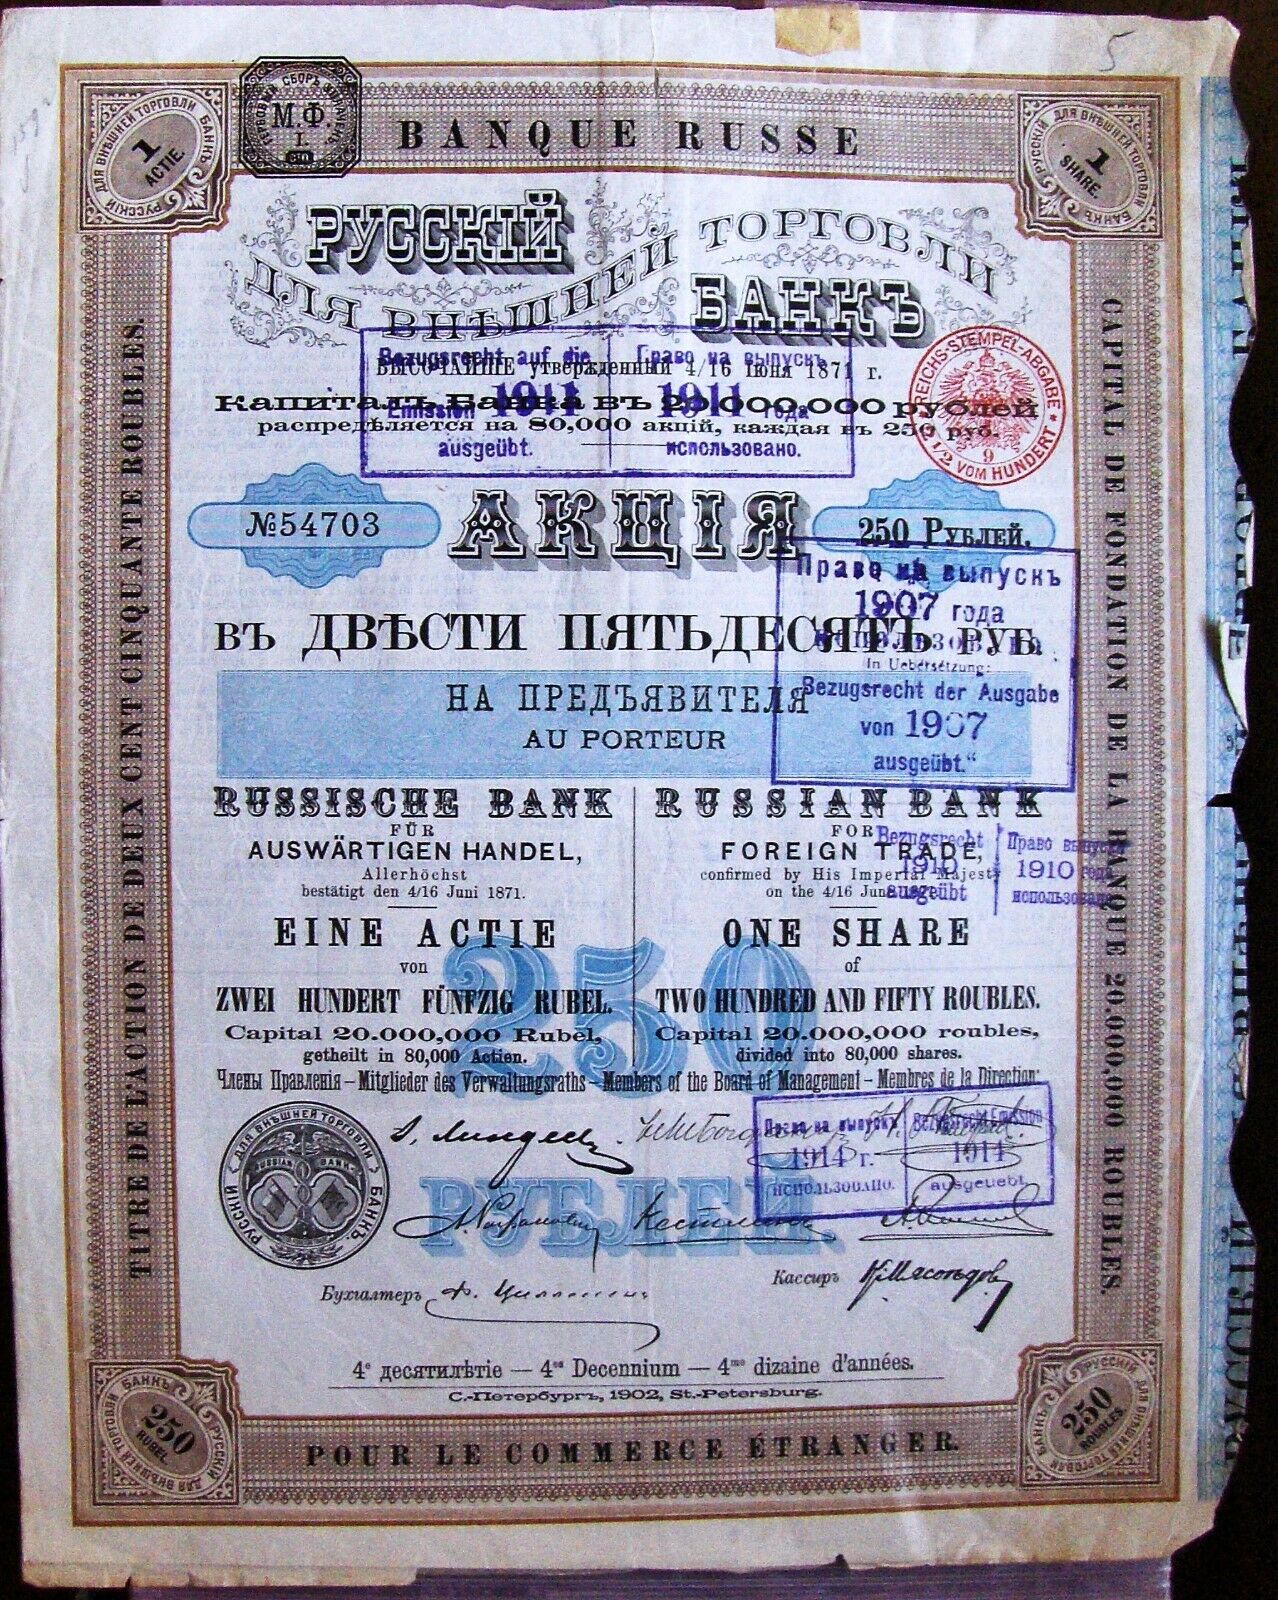 5
BANQUE RUSSE
ДЛЯ ВНѢШНЕЙ ТОРГОВЛИ БАНКЪ РУССКІЙ
1
ACTIE.
М.Ф.
I.
РУССКІЙ ДЛЯ ВНѢШНЕЙ ТОРГОВЛИ БАНКЪ
1
SHARE.
РУССКІЙ
ДЛЯ ВНѢШНЕЙ ТОРГОВЛИ
БАНКЪ
ВЫСОЧАЙШЕ утвержденный 4/16 Іюня 1871 г.
Капиталъ Банка въ 20,000,000 рублей
распредѣляется на 80,000 акцій, каждая въ 250 руб.
Bezugsrecht auf die
Emission 1911
ausgeübt.
Право на выпускъ
1911 года
использовано.
REICHS-STEMPEL-ABGABE
2 1/2 VOM HUNDERT
9
№54703
АКЦІЯ
250 РУБЛЕЙ.
Право на выпускъ
1907 года
использовано.
In Uebersetzung:
Bezugsrecht der Ausgabe
von 1907
ausgeübt.“
ВЪ ДВѢСТИ ПЯТЬДЕСЯТЪ РУБ.
НА ПРЕДЪЯВИТЕЛЯ
AU PORTEUR
RUSSISCHE BANK
FÜR
AUSWÄRTIGEN HANDEL,
Allerhöchst
bestätigt den 4/16 Juni 1871.
EINE ACTIE
von
ZWEI HUNDERT FÜNFZIG RUBEL.
Capital 20.000,000 Rubel,
getheilt in 80,000 Actien.
RUSSIAN BANK
FOR
FOREIGN TRADE,
confirmed by His Imperial Majesty
on the 4/16 June 1871.
ONE SHARE
of
TWO HUNDRED AND FIFTY ROUBLES.
Capital 20.000,000 roubles,
divided into 80,000 shares.
Bezugsrecht
1910
ausgeübt
Право выпуска
1910 года
использовано
250
РУБЛЕЙ.
Члены Правленія – Mitglieder des Verwaltungsraths – Members of the Board of Management – Membres de la Direction:
Право на выпускъ
1914 г.
использовано.
Bezugsrecht Emission
1914
ausgeuebt
РУССКІЙ ДЛЯ ВНѢШНЕЙ ТОРГОВЛИ БАНКЪ.
RUSSIAN BANK
Бухгалтеръ
Кассиръ
4е десятилѣтіе — 4es Decennium — 4me dizaine d'années.
С.-Петербургъ, 1902, St.-Petersburg.
TITRE DE L'ACTION DE DEUX CENT CINQUANTE ROUBLES.
CAPITAL DE FONDATION DE LA BANQUE 20.000,000 ROUBLES.
РУССКІЙ ДЛЯ ВНѢШНЕЙ ТОРГОВЛИ БАНКЪ
250
RUBEL
РУССКІЙ ДЛЯ ВНѢШНЕЙ ТОРГОВЛИ БАНКЪ
250
ROUBLES.
POUR LE COMMERCE ÉTRANGER.